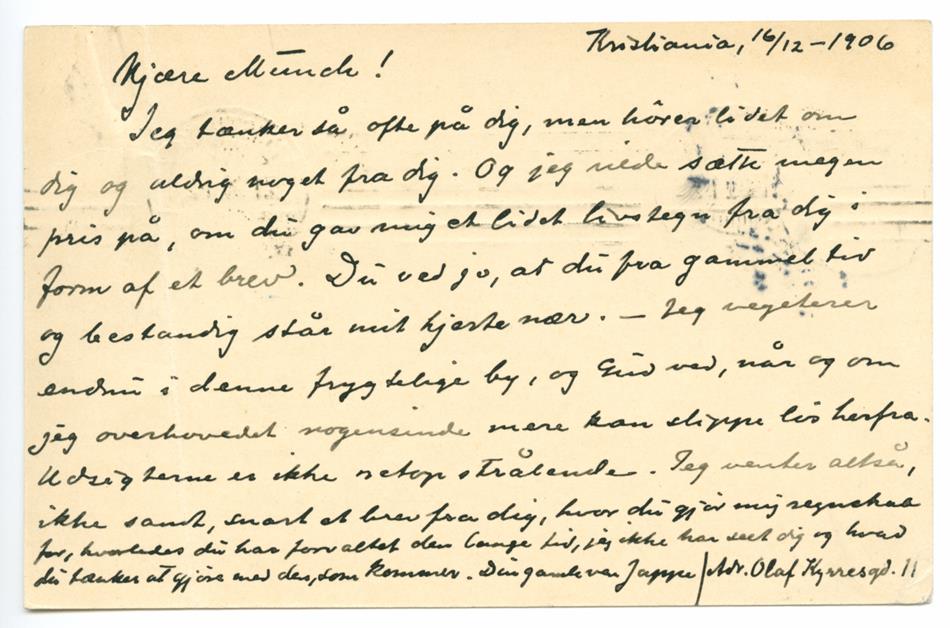 Kristiania, 16/12-1906
Kjære Munch!
Jeg tænker så ofte på dig, men hörer lidet om
dig og aldrig noget fra dig. Og jeg vilde sætte megen
pris på, om du gav mig et lidet livstegn fra dig i
form af et brev. Du ved jo, at du fra gammel tid
og bestandig står mit hjerte nær. – Jeg vegeterer
endnu i denne frygtelige by, og Gud ved, når og om
jeg overhovedet nogensinde mere kan slippe lös herfra.
Udsigterne er ikke netop strålende. Jeg venter altså,
ikke sandt, snart et brev fra dig, hvor du gjör mig regnskab
for, hvorledes du har forvaltet den lange tid, jeg ikke har seet dig og hvad
du tænker at gjöre med den, som kommer. Din gamle ven Jappe / Adr. Olaf Kyrresgd. 11